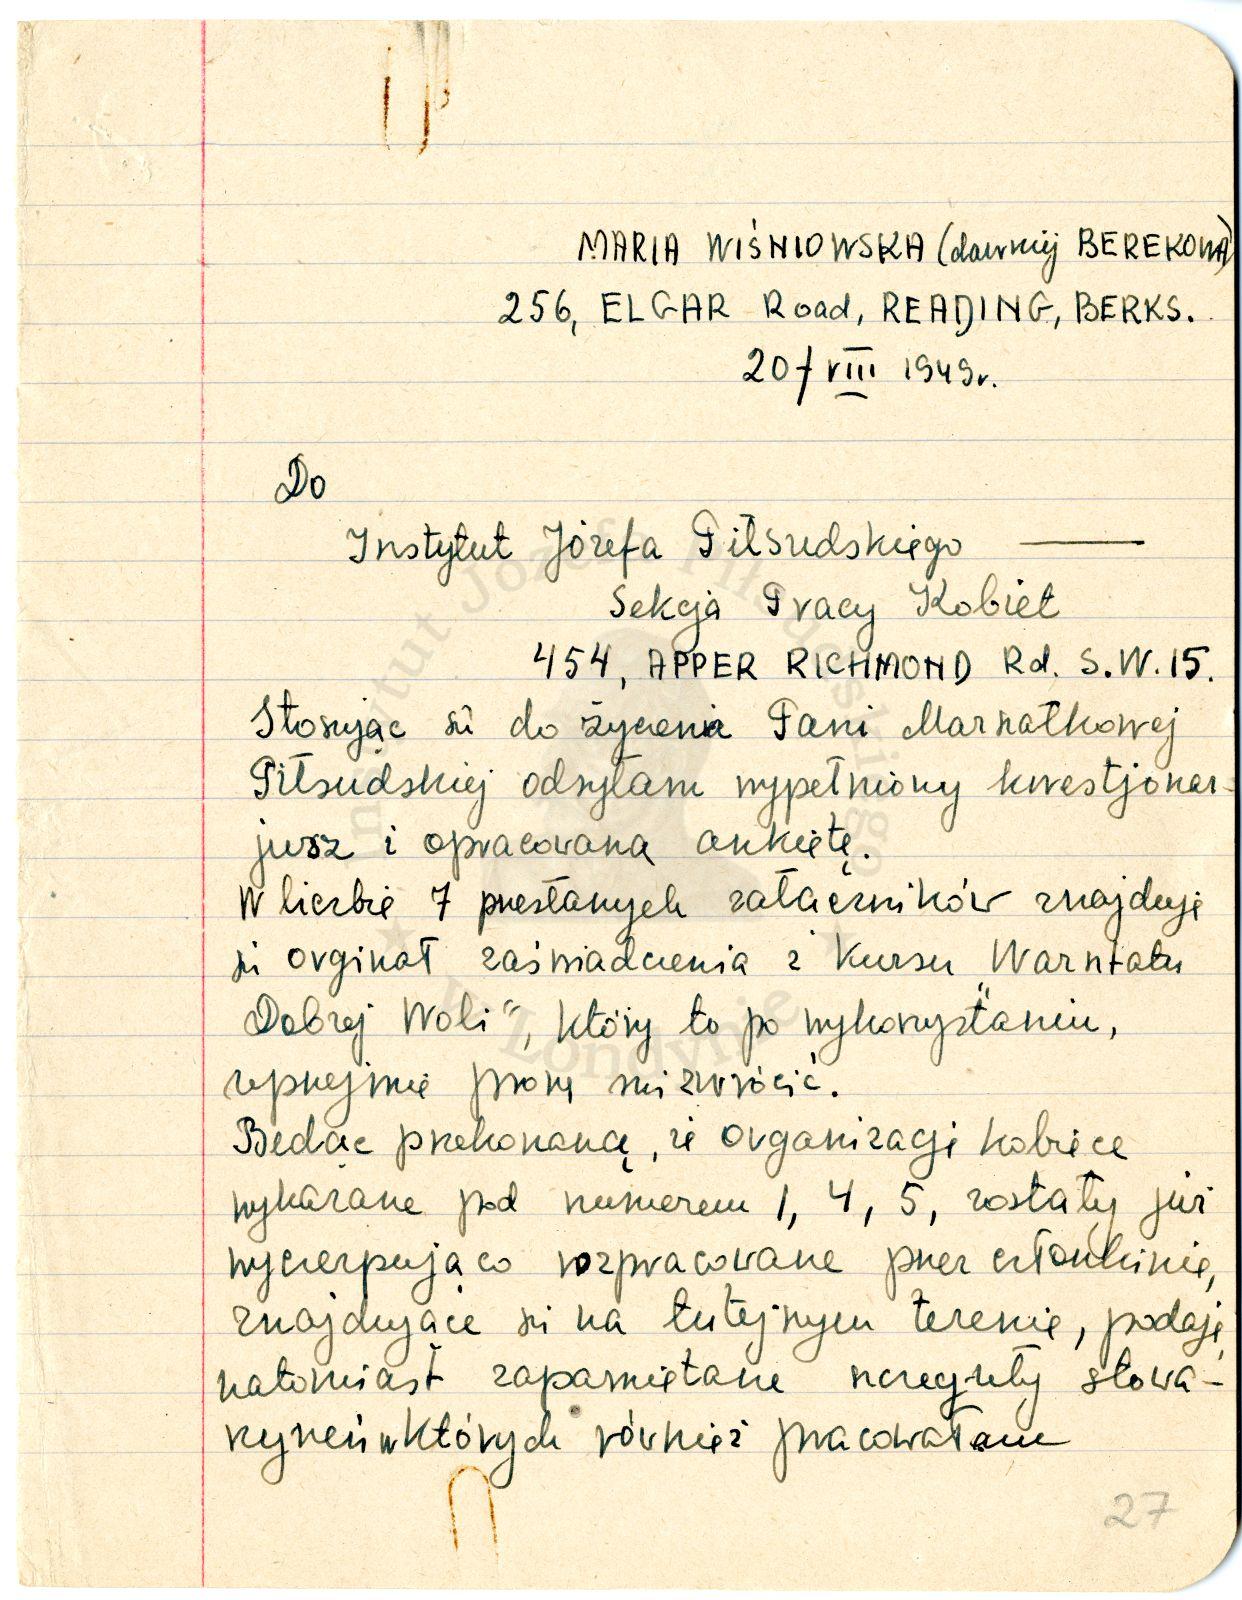 MARIA WIŚNIOWSKA (dawniej BEREKOWA)
256, ELGAR Road, READING, BERKS.
20/VIII 1949r.
Do
Instytut Józefa Piłsudskiego
Sekcja Pracy Kobiet
454, APPER RICHMOND Rd. S.W.15.
Stosując się do życzenia Pani Marszałkowej
Piłsudskiej odsyłam wypełniony kwestjonar-
jusz i opracowaną ankietę.
W liczbie 7 przesłanych załączników znajduje
się orginał zaświadczenia z Kursu „Warsztatu
Dobrej Woli", który to po wykorzystaniu,
uprzejmie proszę mi zwrócić.
Będąc przekonaną, że organizacje kobiece
wykazane pod numerem 1, 4, 5, zostały już
wyczerpująco rozpracowane przez członkinie,
znajdujące się na tutejszym terenie, podaję
natomiast zapamiętane szczegóły stowa-
rzyszeń w których również pracowałam
27
Instytut Józefa Piłsudskiego
w Londynie